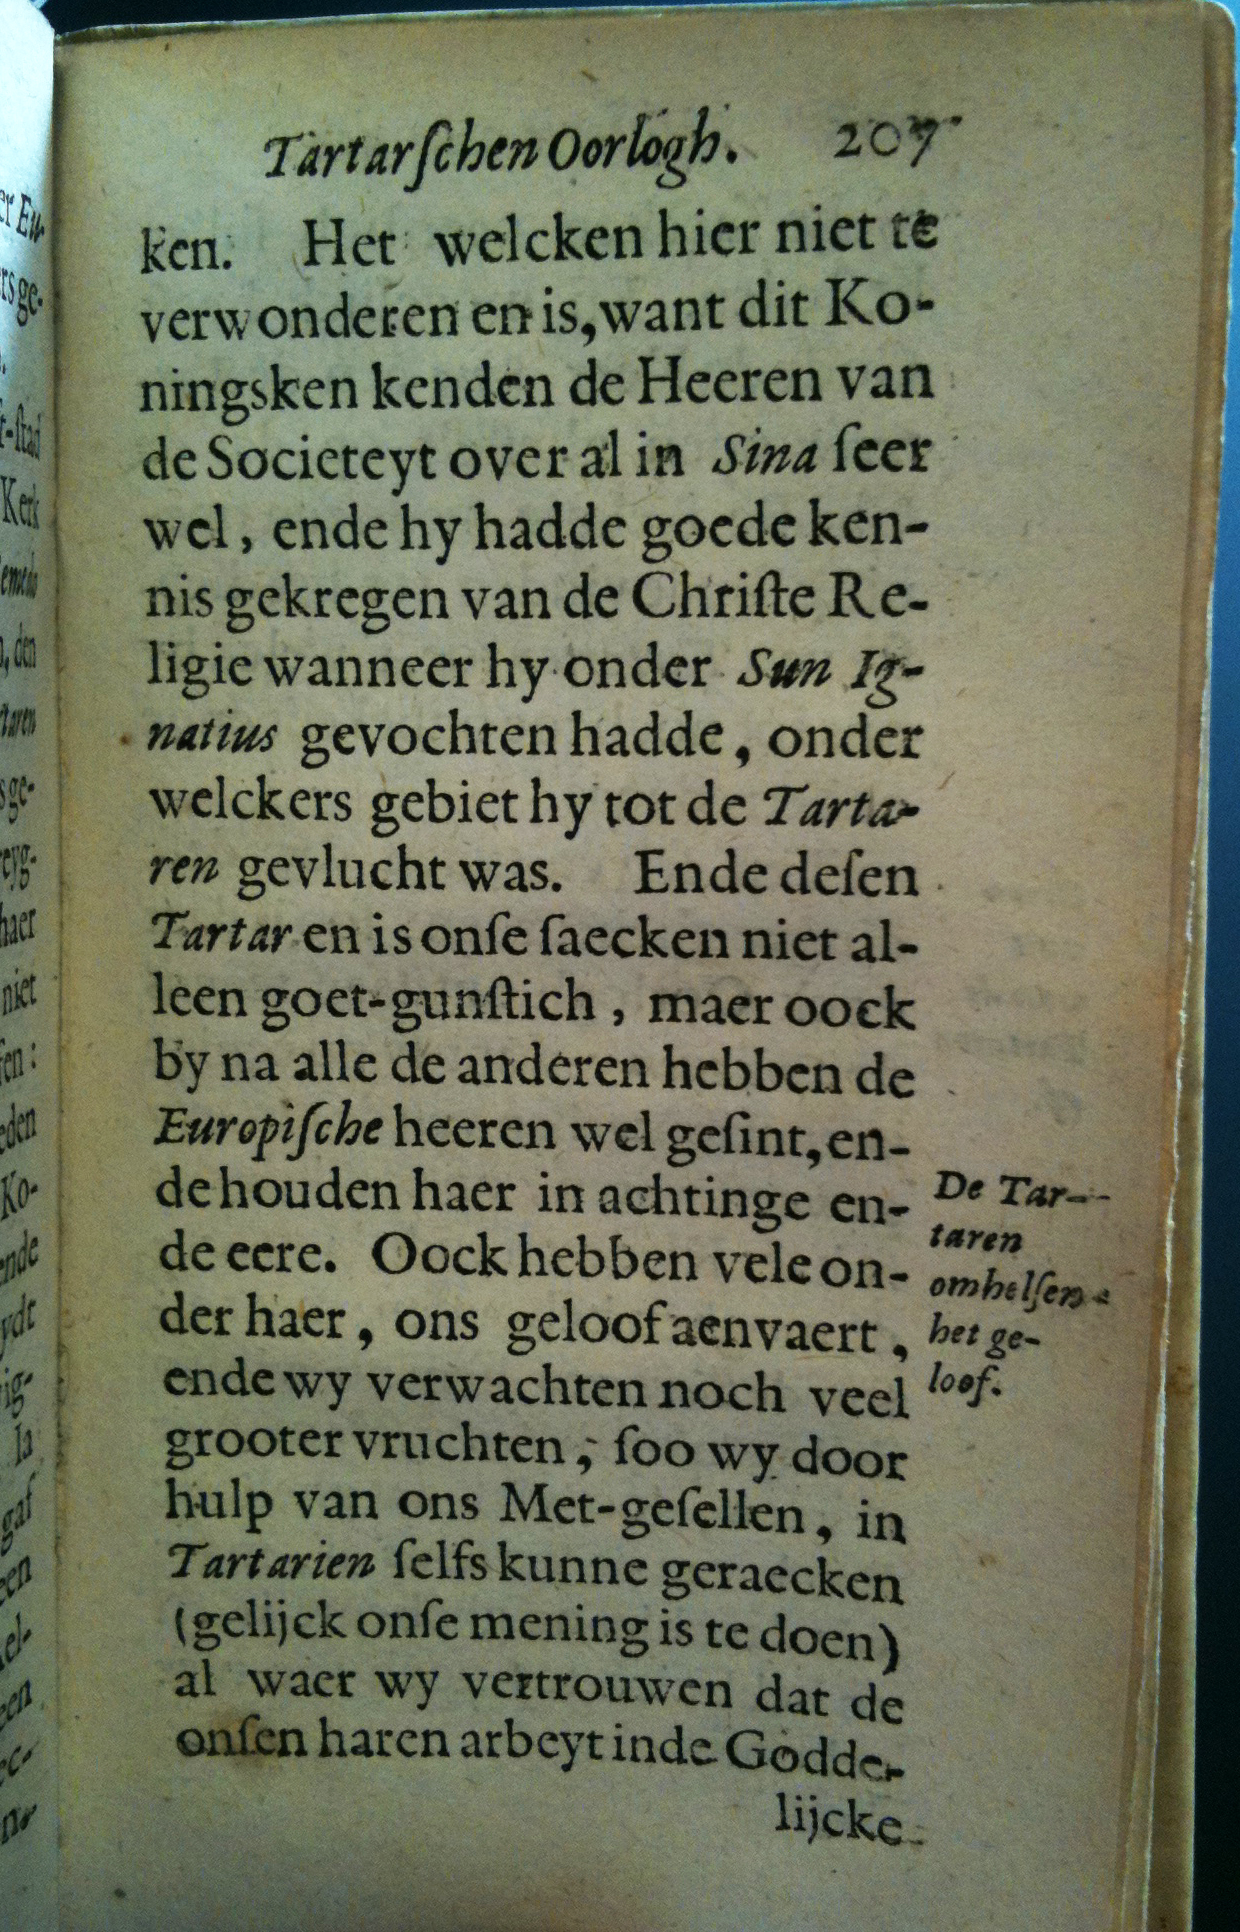 Tartarſchen Oorlogh. 207
ken. Het welcken hier niet te
verwonderen en is, want dit Ko-
ningsken kenden de Heeren van
de Societeyt over al in Sina ſeer
wel, ende hy hadde goede ken-
nis gekregen van de Chriſte Re-
ligie wanneer hy onder Sun Ig-
natius gevochten hadde, onder
welckers gebiet hy tot de Tarta-
ren gevlucht was. Ende deſen
Tartar en is onſe ſaecken niet al-
leen goet-gunſtich, maer oock
by na alle de anderen hebben de
Europiſche heeren wel geſint, en-
de houden haer in achtinge en-
de eere. Oock hebben vele on-
der haer, ons geloof aenvaert,
ende wy verwachten noch veel
grooter vruchten, ſoo wy door
hulp van ons Met-geſellen, in
Tartarien ſelfs kunne geraecken
(gelijck onſe mening is te doen)
al waer wy vertrouwen dat de
onſen haren arbeyt inde Godde-
lijcke
De Tar-
taren
omhelſen
het ge-
loof.
er Eu-
rs ge-
t-ſtad
Kerk
n, den
taren
sge-
eyg-
haer
niet
ſen:
eden
Ko-
ende
ydt
ig-
Ia
gaf
een
el-
een
ec-
n-